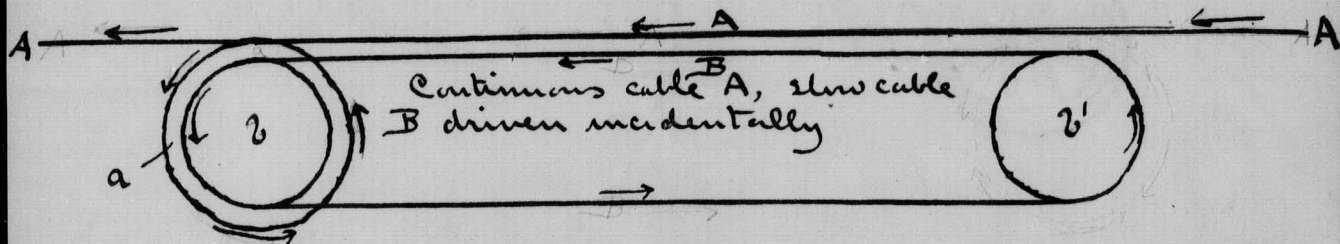 A A A
B
Continuous cable A, slow cable
B driven incidentally
a b b'